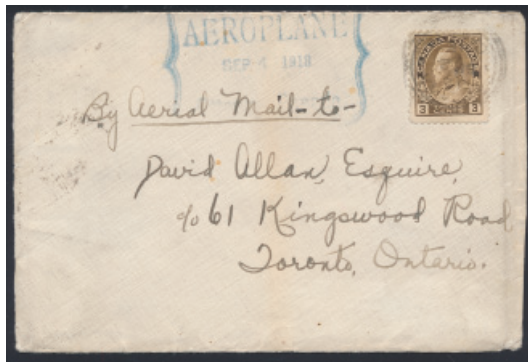 AEROPLANE
SEP 4 1918
CANADA POSTAGE
3 3
By Aerial Mail-to-
David Allan, Esquire,
c/o 61 Kingswood Road
Toronto, Ontario.